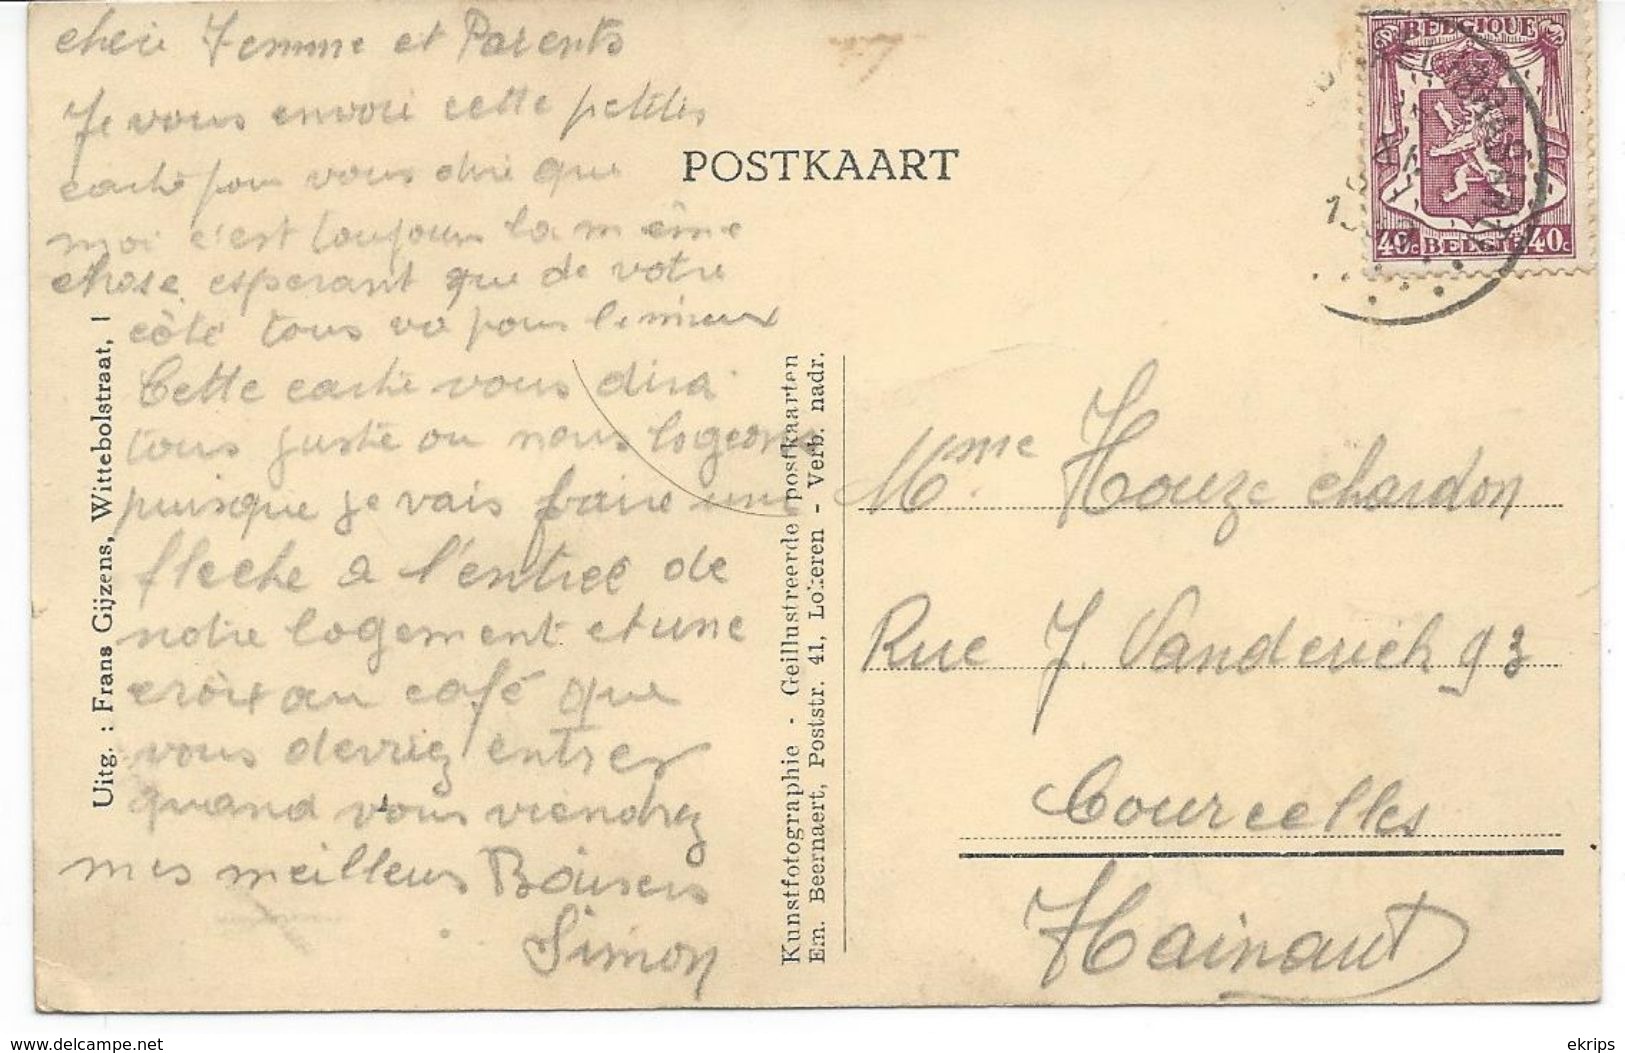 chère Femme et Parents
Je vous envoie cette petites
carte pour vous dire que
moi c'est toujours la même
chose esperant que de votre
côté tous va pour le mieux
Cette carte vous dira
tous juste ou nous logeons
puisque je vais faire une
fleche a l'entreé de
notre logement et une
croix au café que
vous devriez entrer
quand vous viendrez
mes meilleurs Baisers
Simon
Uitg. : Frans Gijzens, Wittebolstraat, 1
POSTKAART
Kunstfotographie - Geillustreerde postkaarten
Em. Beernaert, Poststr. 41, Lokeren - Verb. nadr.
BELGIQUE
40c BELGIË 40c
Mme Houze chardon
Rue J. Vanderick 93
Courcelles
Hainaut
www.delcampe.net
ekrips